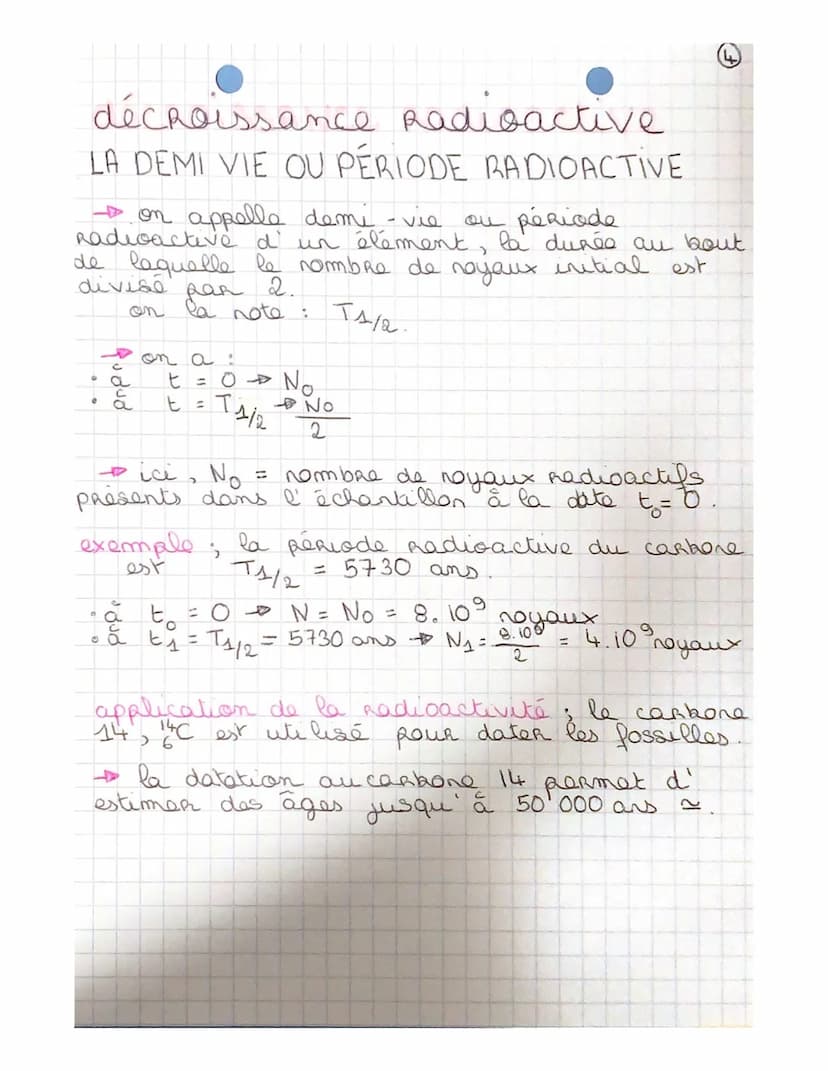 4
décroissance radioactive
LA DEMI VIE OU PÉRIODE RADIOACTIVE
→ on appelle demi-vie ou période
radioactive d'un élément, la durée au bout
de laquelle le nombre de noyaux initial est
divisé par 2.
on la note : T1/2.
→ on a :
• à t = 0 → N0
• à t = T1/2 → N0/2
→ ici, N0 = nombre de noyaux radioactifs
présents dans l'échantillon à la date t0 = 0.
exemple ; la période radioactive du carbone
est T1/2 = 5730 ans.
• à t0 = 0 → N = N0 = 8.10⁹ noyaux
• à t1 = T1/2 = 5730 ans → N1 = 8.10⁹/2 = 4.10⁹ noyaux
application de la radioactivité ; le carbone
14, ¹⁴₆C est utilisé pour dater les fossilles.
→ la datation au carbone 14 permet d'
estimer des âges jusqu'à 50'000 ans ≃.